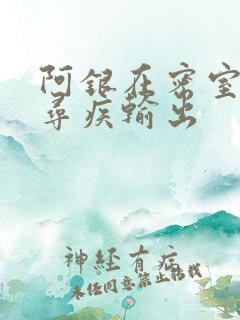 阿银在密室
寻疾輸出
神经有症
未经同意禁止转载